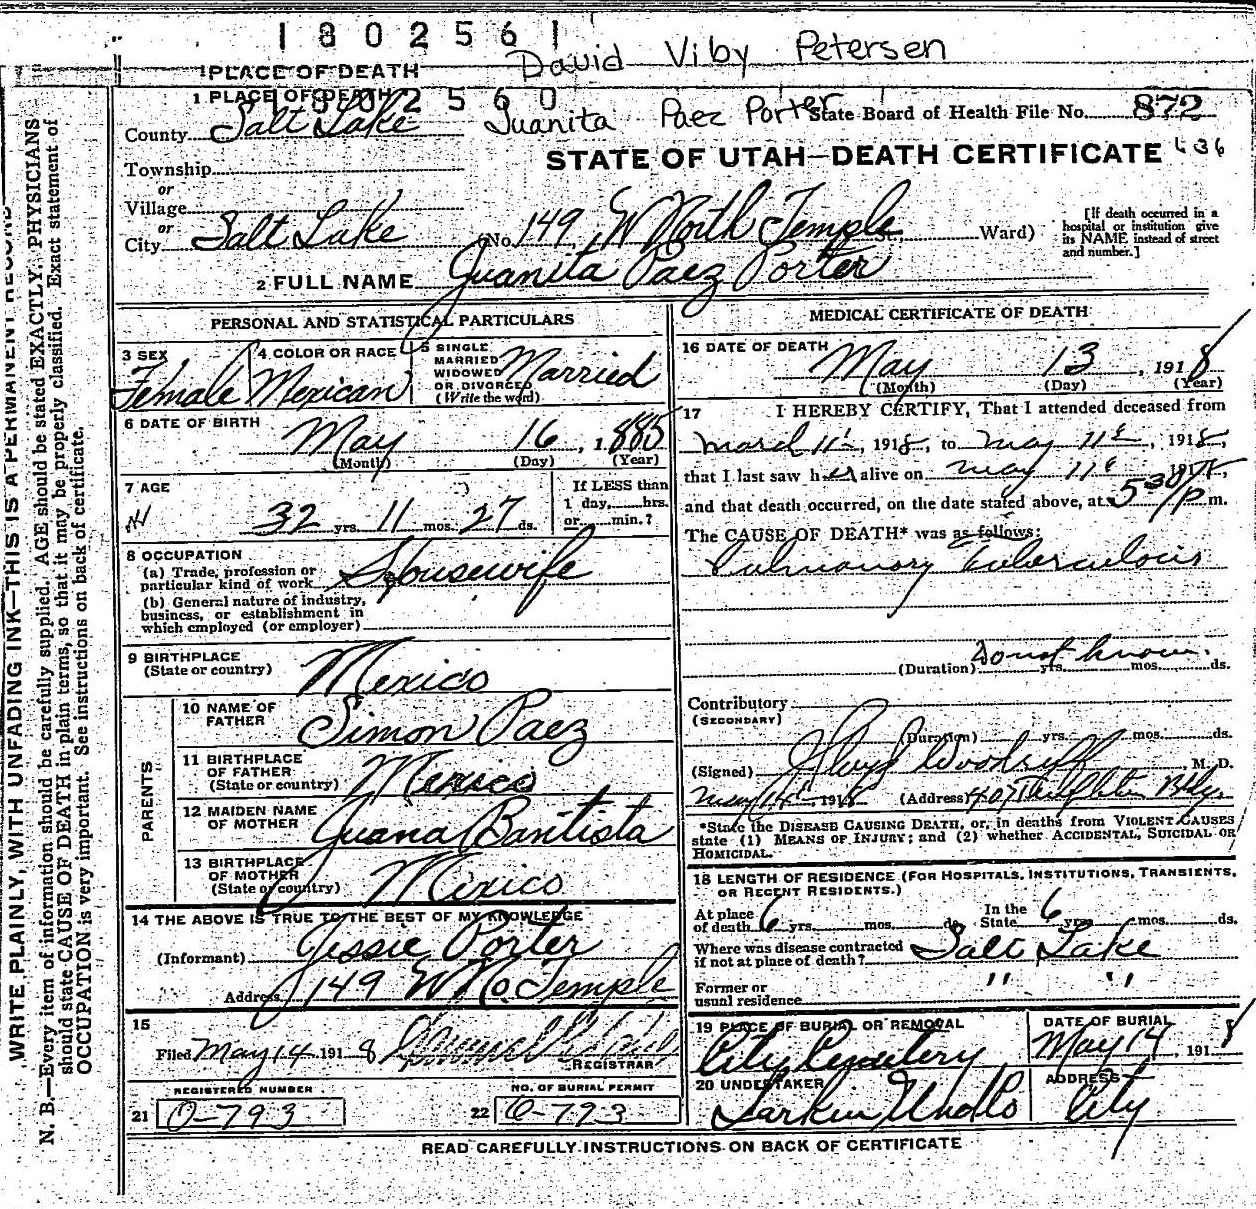 1802561
David Viby Petersen
1 PLACE OF DEATH
1 PLACE OF DEATH
1802560
County Salt Lake
Juanita Paez Porter
State Board of Health File No. 872
STATE OF UTAH—DEATH CERTIFICATE 636
Township
or
Village
or
City Salt Lake (No. 149 W North Temple St., Ward)
[If death occurred in a hospital or institution give its NAME instead of street and number.]
2 FULL NAME Juanita Paez Porter
PERSONAL AND STATISTICAL PARTICULARS
3 SEX Female
4 COLOR OR RACE Mexican
5 SINGLE MARRIED WIDOWED OR DIVORCED (Write the word) Married
6 DATE OF BIRTH May 16, 1885
(Month) (Day) (Year)
7 AGE 32 yrs. 11 mos. 27 ds.
If LESS than 1 day, hrs. or min.?
8 OCCUPATION
(a) Trade, profession or particular kind of work Housewife
(b) General nature of industry, business, or establishment in which employed (or employer)
9 BIRTHPLACE (State or country) Mexico
PARENTS
10 NAME OF FATHER Simon Paez
11 BIRTHPLACE OF FATHER (State or country) Mexico
12 MAIDEN NAME OF MOTHER Juana Bantista
13 BIRTHPLACE OF MOTHER (State or country) Mexico
14 THE ABOVE IS TRUE TO THE BEST OF MY KNOWLEDGE
(Informant) Jessie Porter
Address 149 W No. Temple
15
Filed May 14 1918
REGISTRAR
REGISTERED NUMBER
21 O-793
NO. OF BURIAL PERMIT
22 O-793
MEDICAL CERTIFICATE OF DEATH
16 DATE OF DEATH May 13, 1918
(Month) (Day) (Year)
17 I HEREBY CERTIFY, That I attended deceased from
March 11th, 1918, to May 11th, 1918,
that I last saw her alive on May 11th 1918,
and that death occurred, on the date stated above, at 5 30/P m.
The CAUSE OF DEATH* was as follows:
Pulmonary Tuberculosis
(Duration) Don't know. yrs. mos. ds.
Contributory
(SECONDARY)
(Duration) yrs. mos. ds.
(Signed) Woolruff, M. D.
May 14th 1918 (Address) 407 Bldg.
*State the DISEASE CAUSING DEATH, or, in deaths from VIOLENT CAUSES
state (1) MEANS OF INJURY; and (2) whether ACCIDENTAL, SUICIDAL OR
HOMICIDAL.
18 LENGTH OF RESIDENCE (FOR HOSPITALS, INSTITUTIONS, TRANSIENTS,
OR RECENT RESIDENTS.)
At place of death 6 yrs. mos. ds. In the State 6 yrs. mos. ds.
Where was disease contracted if not at place of death? Salt Lake
Former or usual residence " "
19 PLACE OF BURIAL OR REMOVAL
City Cemetery
DATE OF BURIAL
May 14, 1918
20 UNDERTAKER
Larkin Undto
ADDRESS
City
READ CAREFULLY INSTRUCTIONS ON BACK OF CERTIFICATE
WRITE PLAINLY, WITH UNFADING INK—THIS IS A PERMANENT RECORD
N. B.—Every item of information should be carefully supplied. AGE should be stated EXACTLY. PHYSICIANS
should state CAUSE OF DEATH in plain terms, so that it may be properly classified. Exact statement of
OCCUPATION is very important. See instructions on back of certificate.